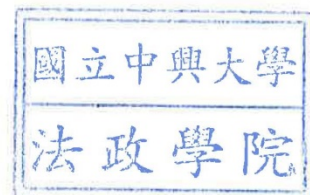 國立中興大學
法政學院